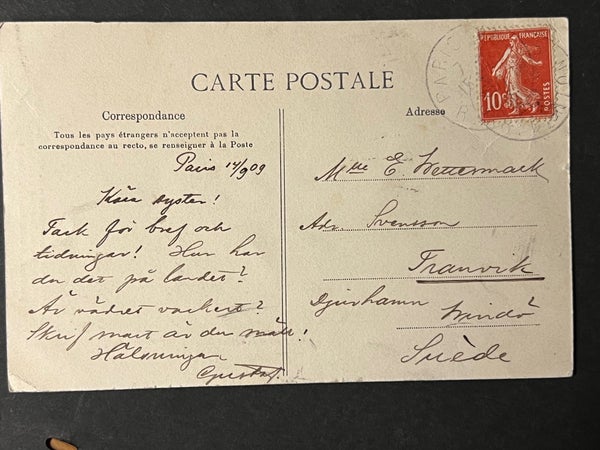 CARTE POSTALE
Correspondance
Tous les pays étrangers n'acceptent pas la
correspondance au recto, se renseigner à la Poste
Paris 14/9 09
Kära syster!
Tack för bref och
tidningar! Hur har
du det på landet?
Är vädret vackert?
Skrif snart är du snäll!
Hälsningar
Gustaf.
Adresse
REPUBLIQUE FRANÇAISE
10c
POSTES
PARIS
Mlle E. Wettermark
Adr. Svensson
Tranvik
Djurhamn Vindö
Suède